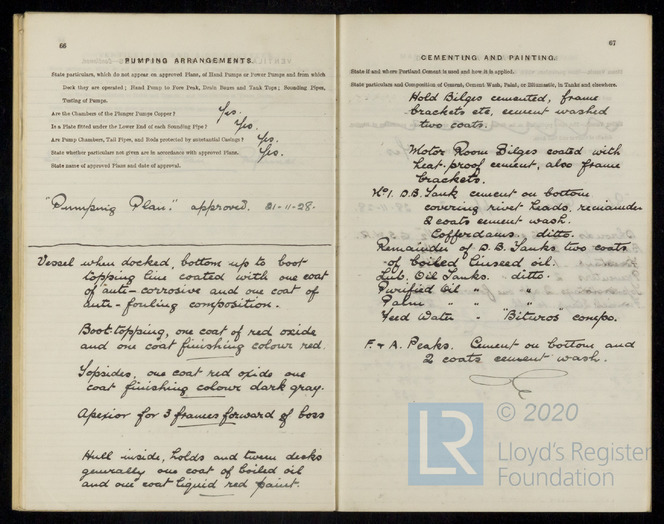 66
PUMPING ARRANGEMENTS.
State particulars, which do not appear on approved Plans, of Hand Pumps or Power Pumps and from which
Deck they are operated; Hand Pump to Fore Peak, Drain Boxes and Tank Tops; Sounding Pipes,
Testing of Pumps.
Are the Chambers of the Plunger Pumps Copper? Yes.
Is a Plate fitted under the Lower End of each Sounding Pipe? Yes.
Are Pump Chambers, Tail Pipes, and Rods protected by substantial Casings? Yes.
State whether particulars not given are in accordance with approved Plans. Yes.
State name of approved Plans and date of approval.
"Pumping Plan." approved. 21-11-28.
Vessel when docked, bottom up to boot
topping line coated with one coat
of anti-corrosive and one coat of
anti-fouling composition.
Boot topping, one coat of red oxide
and one coat finishing colour red.
Topsides, one coat red oxide one
coat finishing colour dark gray.
Apexior for 3 frames forward of boss
Hull inside, holds and tween decks
generally one coat of boiled oil
and one coat liquid red paint.
67
CEMENTING AND PAINTING.
State if and where Portland Cement is used and how it is applied.
State particulars and Composition of Cement, Cement Wash, Paint, or Bitumastic, in Tanks and elsewhere.
Hold Bilges cemented, frame
brackets etc, cement washed
two coats.
Motor Room Bilges coated with
heat-proof cement, also frame
brackets.
No 1. D.B. Tank cement on bottom
covering rivet heads, remainder
2 coats cement wash.
Cofferdams ditto.
Remainder of D.B. Tanks two coats
of boiled linseed oil.
Lub. Oil Tanks. ditto.
Purified Oil " " "
Palm " " "
Feed Water " "Bituros" compo.
F. & A. Peaks. Cement on bottom and
2 coats cement wash.
LR
© 2020
Lloyd's Register
Foundation